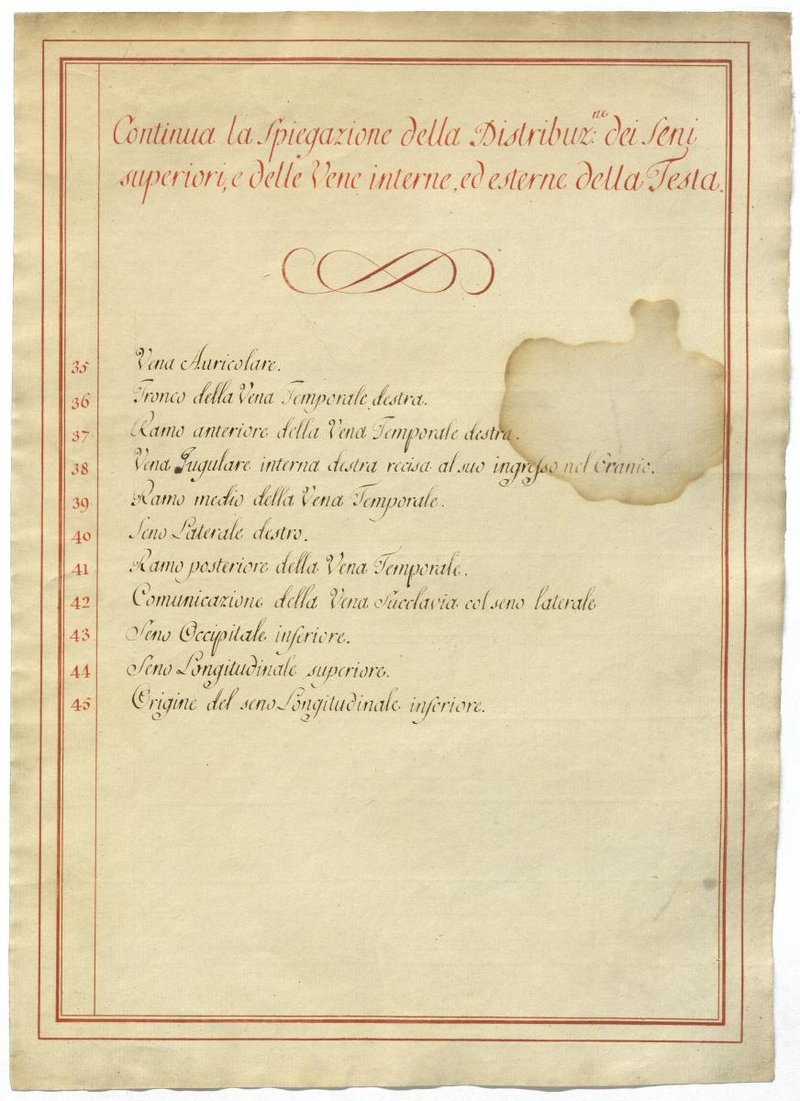 Continua la Spiegazione della Distribuz:ne dei Seni
superiori, e delle Vene interne, ed esterne della Testa.
35 Vena Auricolare.
36 Tronco della Vena Temporale destra.
37 Ramo anteriore della Vena Temporale destra.
38 Vena Jugulare interna destra recisa al suo ingresso nel Cranio.
39 Ramo medio della Vena Temporale.
40 Seno Laterale destro.
41 Ramo posteriore della Vena Temporale.
42 Comunicazione della Vena Succlavia col seno laterale
43 Seno Occipitale inferiore.
44 Seno Longitudinale superiore.
45 Origine del seno Longitudinale inferiore.